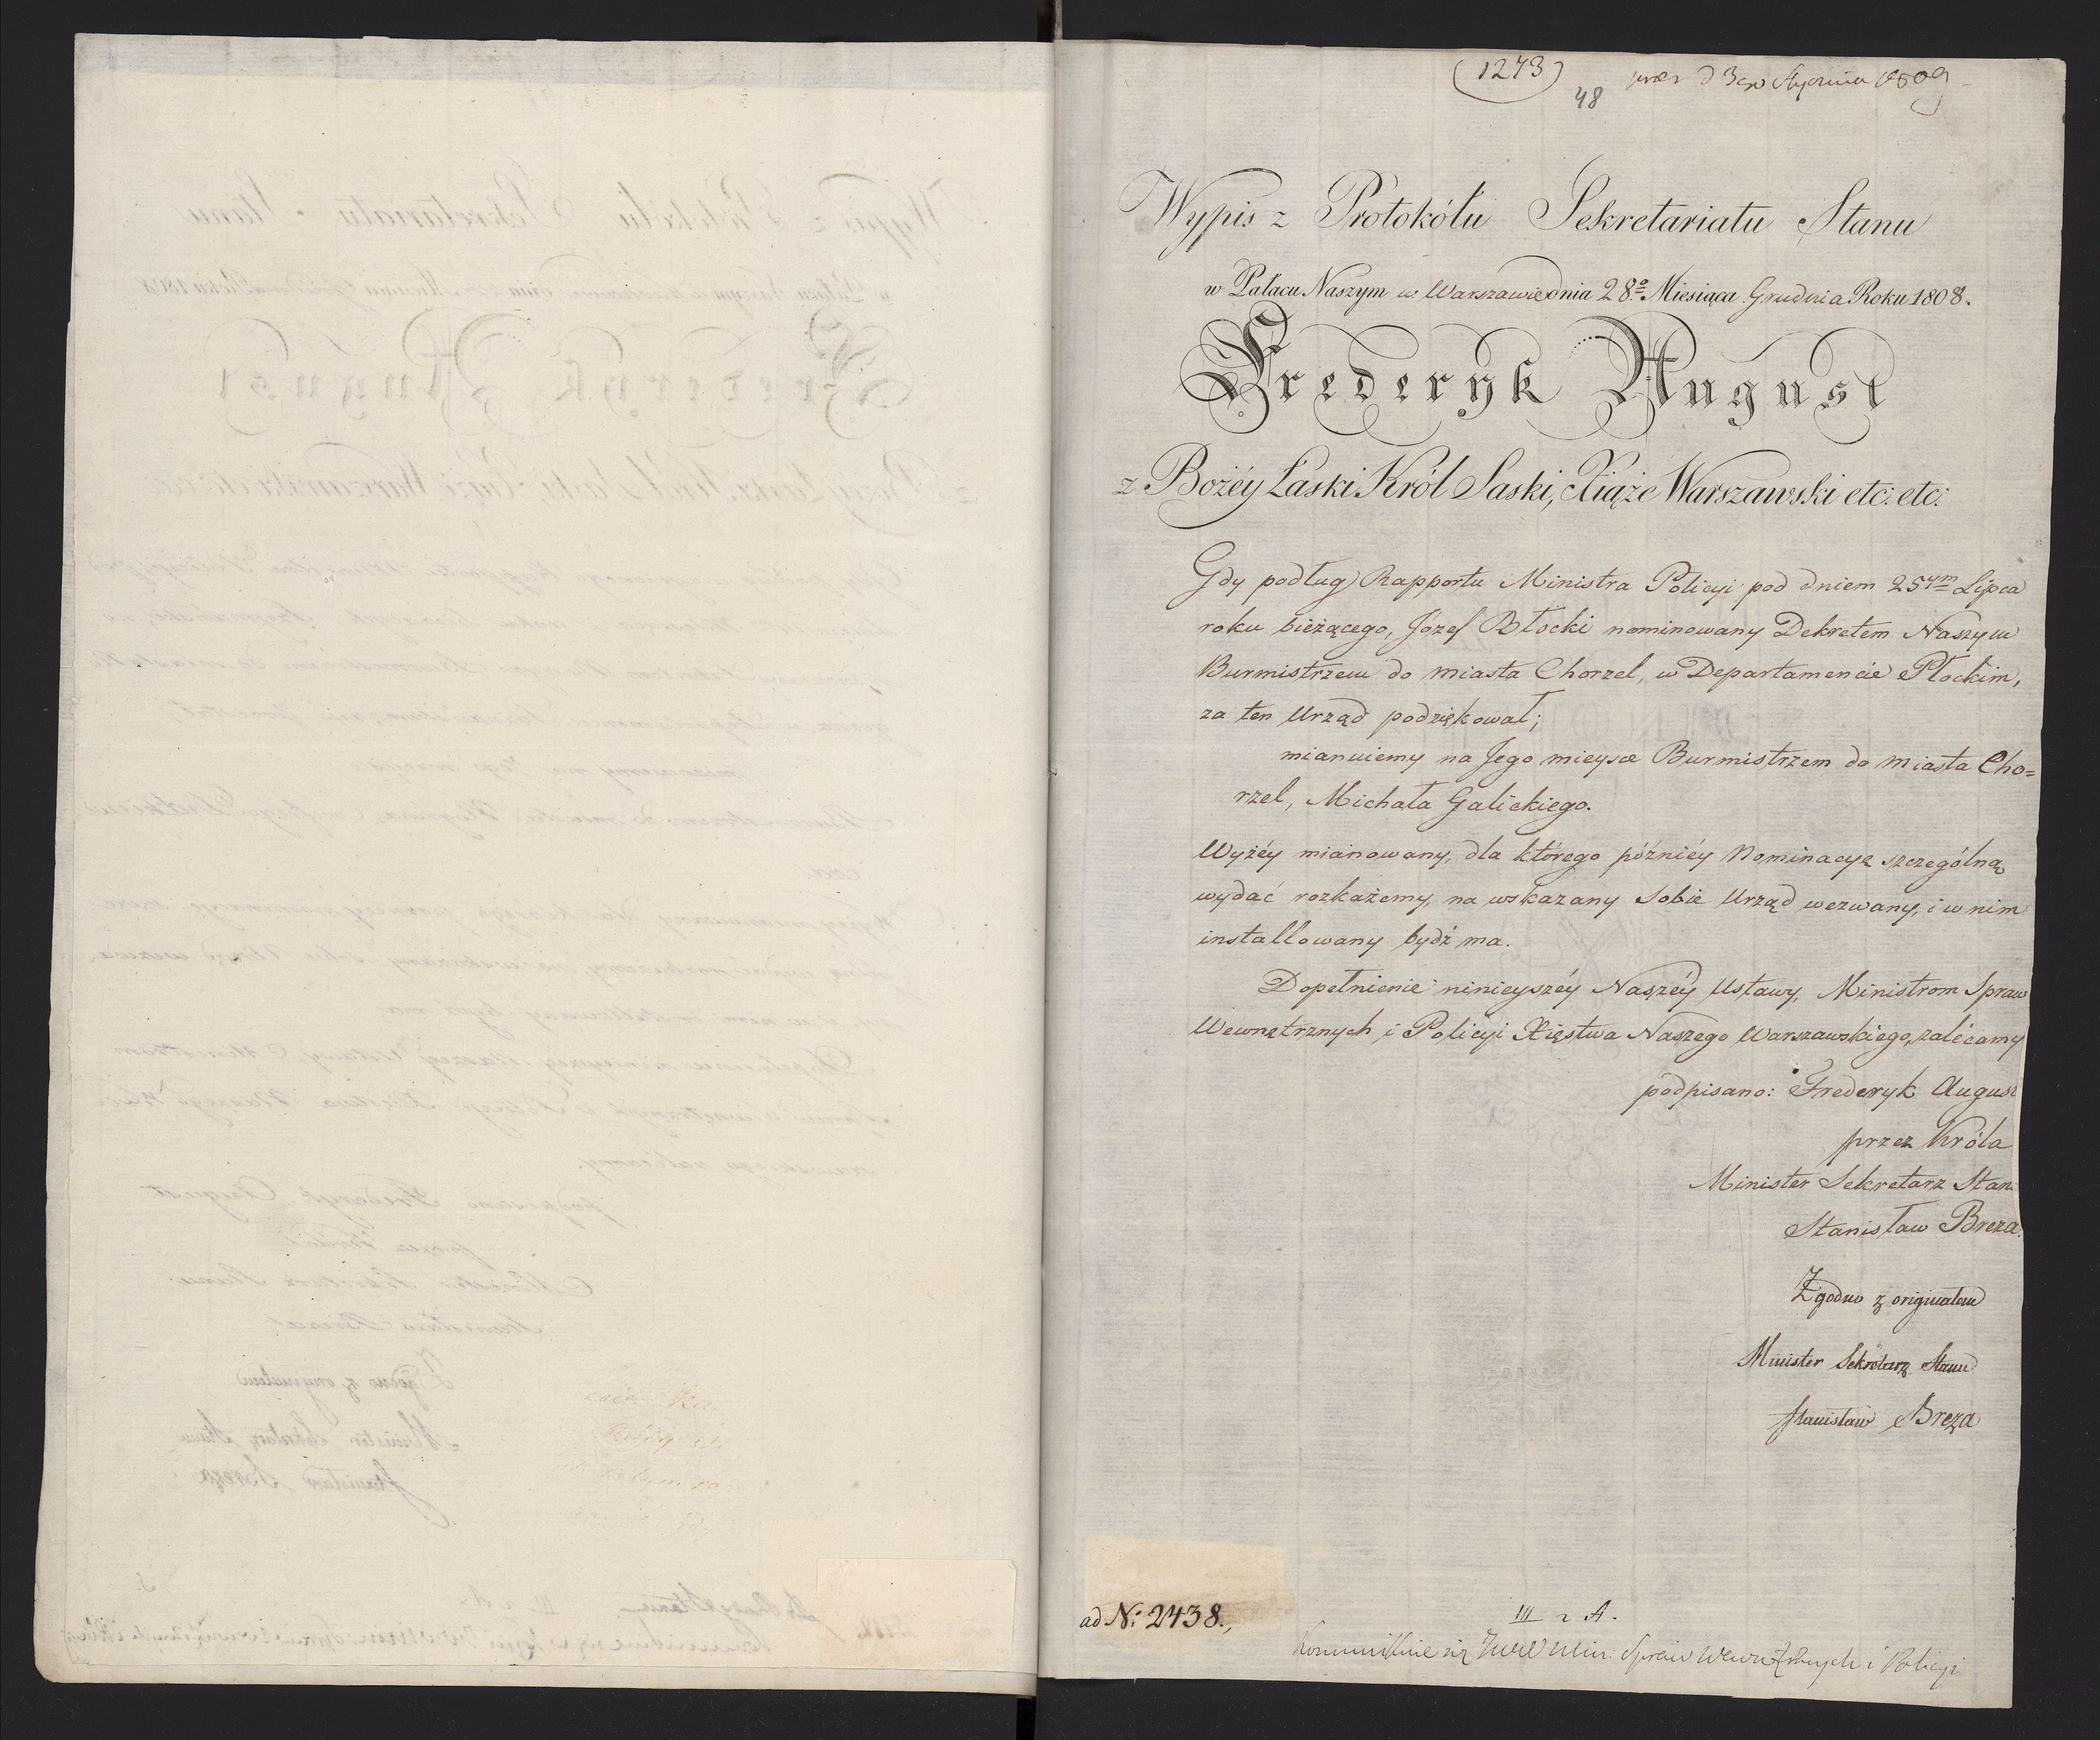 (1273)
48
prez d 3go Stycznia 1809
Wypis z Protokólu Sekretariatu Stanu
w Pałacu Naszym w Warszawie dnia 28o. Miesiąca Grudnia Roku 1808.
Frederyk August
z Bożéy Łaski Król Saski, Xiąże Warszawski etc: etc:
Gdy podług Rapportu Ministra Policyi pod dniem 25ym Lipca
roku bieżącego, Józef Błocki nominowany Dekretem Naszym
Burmistrzem do miasta Chorzel, w Departamencie Płockim,
za ten Urząd podziękował;
mianuiemy na Jego mieysce Burmistrzem do miasta Cho=
rzel, Michała Galickiego.
Wyżéy mianowany, dla którego późniéy Nominacyą szczególną
wydać rozkażemy, na wskazany sobie Urząd wezwany, i w nim
installowany bydź ma.
Dopełnienie ninieyszéy Naszéy Ustawy, Ministrom Spraw
Wewnętrznych i Policyi Xięstwa Naszego Warszawskiego, zalécamy
podpisano: Frederyk August
przez Króla
Minister Sekretarz Stan
Stanisław Breza.
Zgodno z originałem
Minister Sekretarz Stanu
Stanisław Breza
ad N: 2438.,
III 2 A.
Kommunikuie się JWW Min: Spraw Wewnętrznych i Policyi